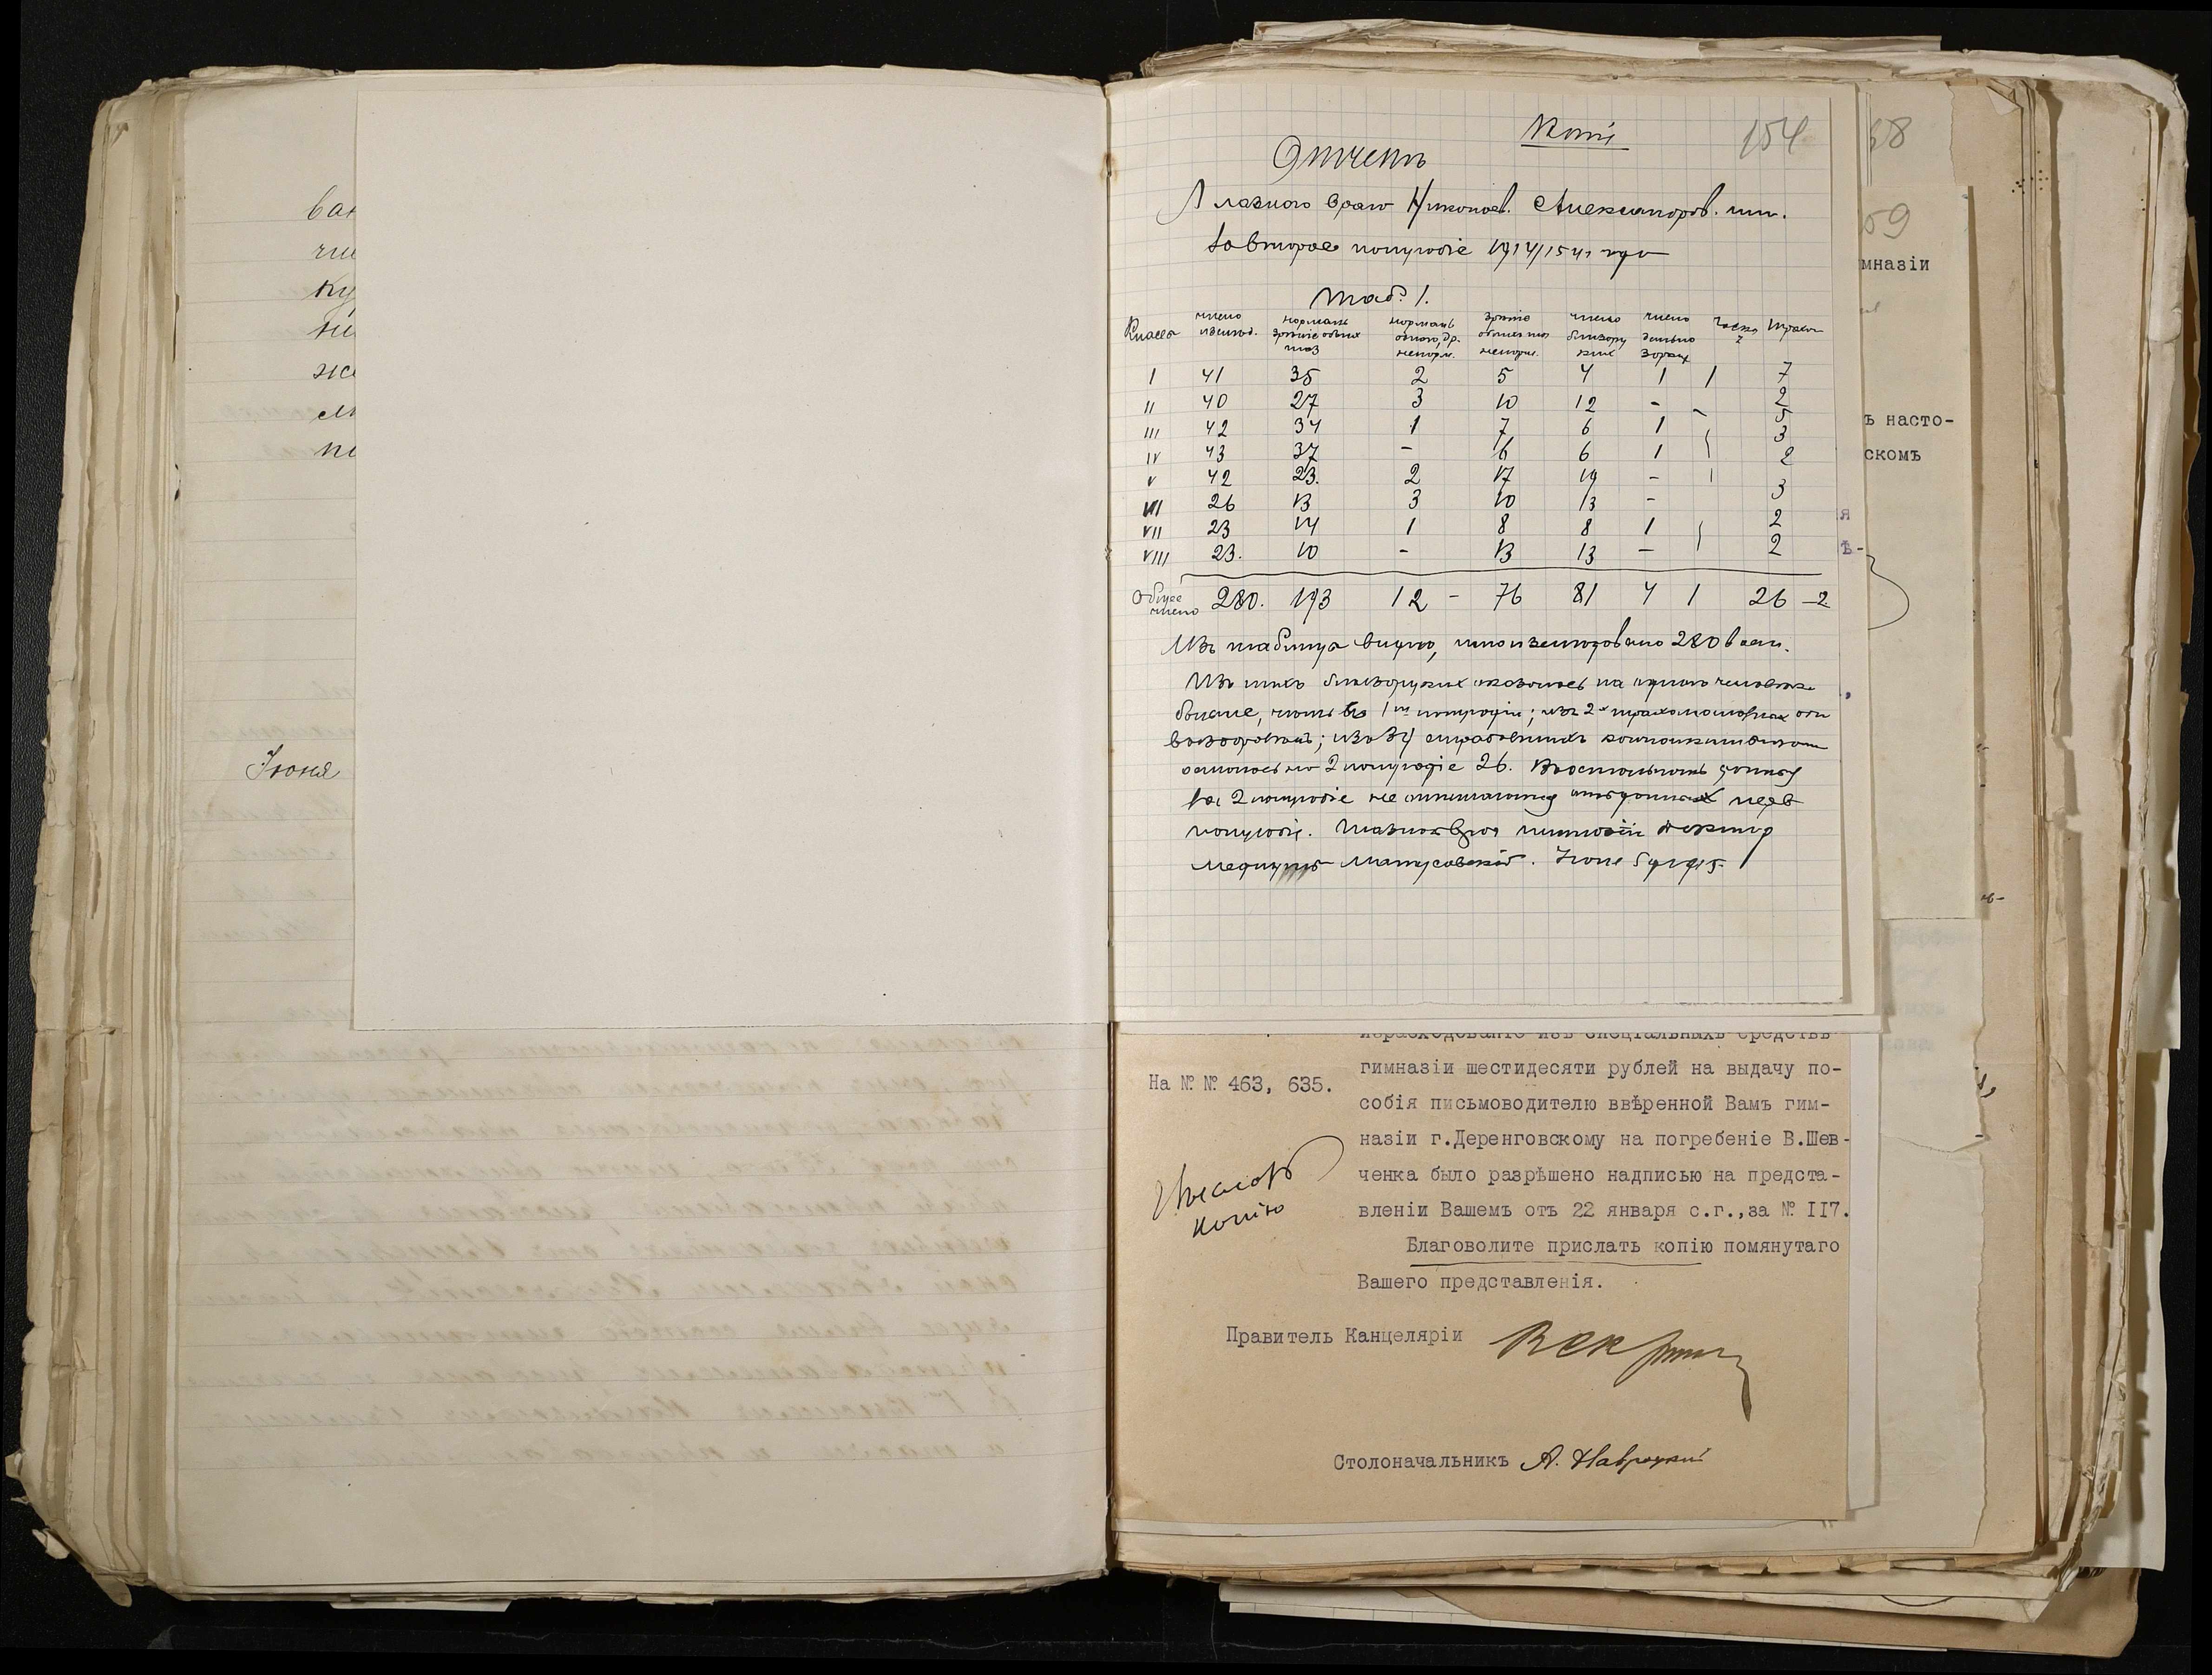 ва
чи
ку
ни
же
ст
по
Іюня
Копія
154
Отчетъ
Глазного врача Николаев. Александров. гим.
за второе полугодіе 1914/15 уч. года
Таб. 1.
Классы число изслѣд. нормаль. зрѣніе обоихъ глаз нормаль. одного, др. ненорм. зрѣніе обоихъ глаз ненорм. число близору ких число дально зорких Трахом
I 41 35 2 5 4 1 1 7
II 40 27 3 10 12 - 2
III 42 34 1 7 6 1 5
IV 43 37 - 6 6 1 3
V 42 23. 2 17 19 - 2
VI 26 13 3 10 13 - 3
VII 23 14 1 8 8 1 2
VIII 23. 10 - 13 13 - 2
Общее число 280. 193 12 - 76 81 4 1 26 - 2
Изъ таблицы видно, что изслѣдовано 280 восп.
Изъ нихъ близорукихъ оказалось на одного человѣка
больше, чѣмъ въ 1м полугодіи; изъ 2х трахоматозных оба
выздоровѣли; изъ 34
осталось на 2 полугодіе 26. Въ остальномъ данныя
за 2 полугодіе не отличаются отъ данных перв
полугодія. Глазной врач гимназіи докторъ
медицины Матусовскій. Іюня 5 д 1915.
58
59
мназіи
ъ насто-
скомъ
я
ѣ-
израсходованіе изъ спеціальныхъ средствъ
На № № 463, 635.
гимназіи шестидесяти рублей на выдачу по-
собія письмоводителю ввѣренной Вамъ гим-
назіи г.Деренговскому на погребеніе В.Шев-
ченка было разрѣшено надписью на предста-
вленіи Вашемъ отъ 22 января с.г.,за № II7.
Благоволите прислать копію помянутаго
Вашего представленія.
копію
Правитель Канцеляріи
Столоначальникъ А. Навроцкій